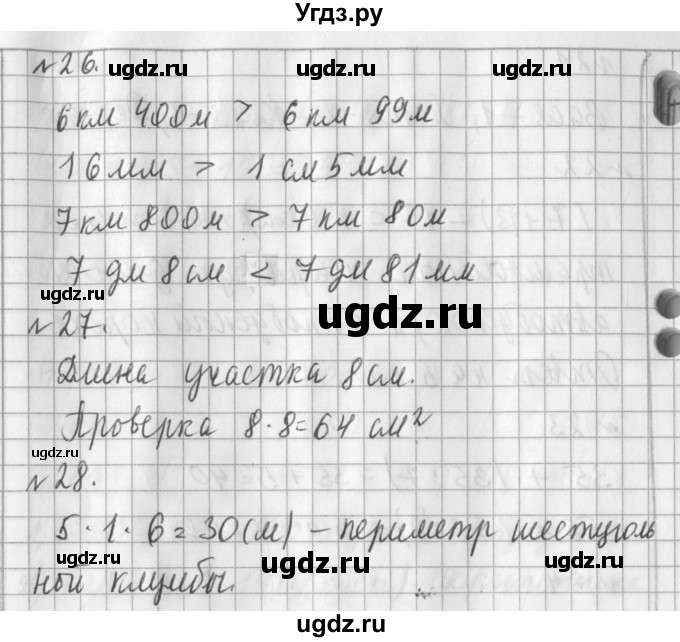 Угдз.ру
№26.
ugdz.ru ugdz.ru ugdz.ru
6 км 400м > 6 км 99м
16мм > 1 см 5мм
7км 800м > 7 км 80м
7 дм 8см < 7 дм 81мм
ugdz.ru
№27.
ugdz.ru
Длина участка 8см.
Проверка 8·8=64 см²
ugdz.ru
№28.
5·1·6=30(м) – периметр шестиуголь
ugdz.ru ugdz.ru ugdz.ru
ной клумбы.
ugdz.ru